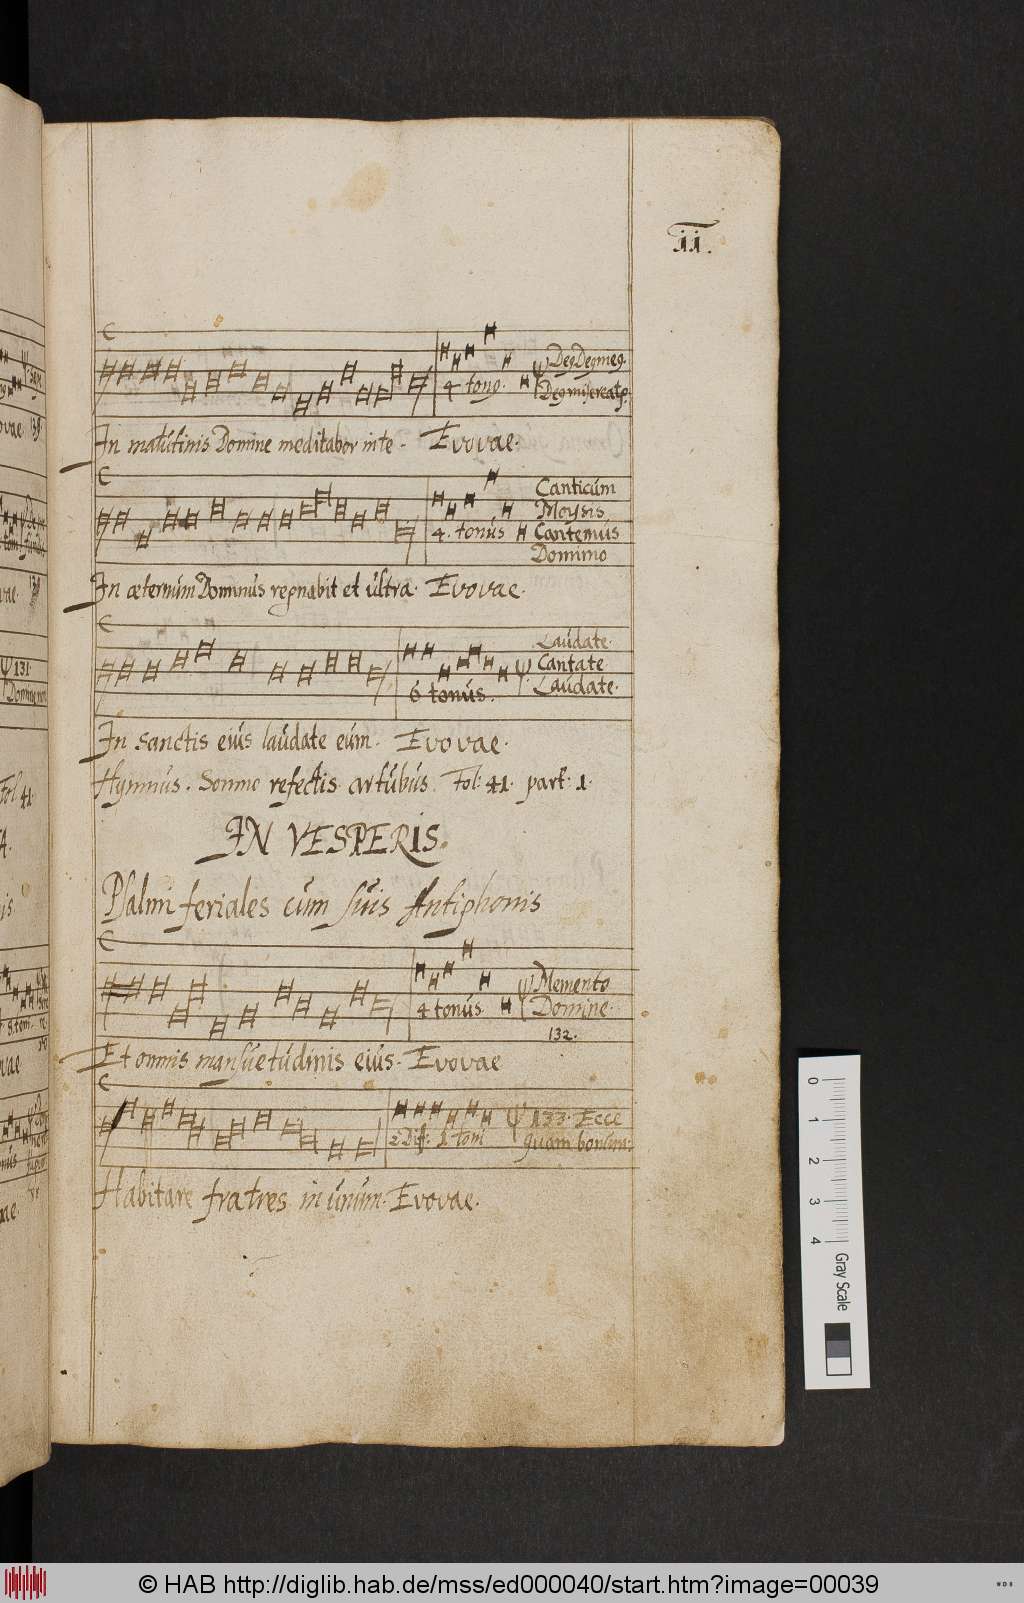 11.
Deus Deus meus.
4 tonus. Deus misereatur.
In matutinis Domine meditabor in te. Evovae.
Canticum
Moysis
4. tonus Cantemus
Domino
In æternum Dominus regnabit et ultra. Evovae.
Laudate.
Cantate
6 tonus. Laudate.
In sanctis eius laudate eum. Evovae.
Hymnus. Somno refectis artubus. Fol: 41. part: 1.
IN VESPERIS.
Psalmi feriales cum suis Antiphonis
Memento
4 tonus. Domine.
132.
Et omnis mansuetudinis eius. Evovae
133. Ecce
2 Dif: 1 toni quam bonum:
Habitare fratres in unum. Evovae.
0 1 2 3 4 Gray Scale
© HAB http://diglib.hab.de/mss/ed000040/start.htm?image=00039